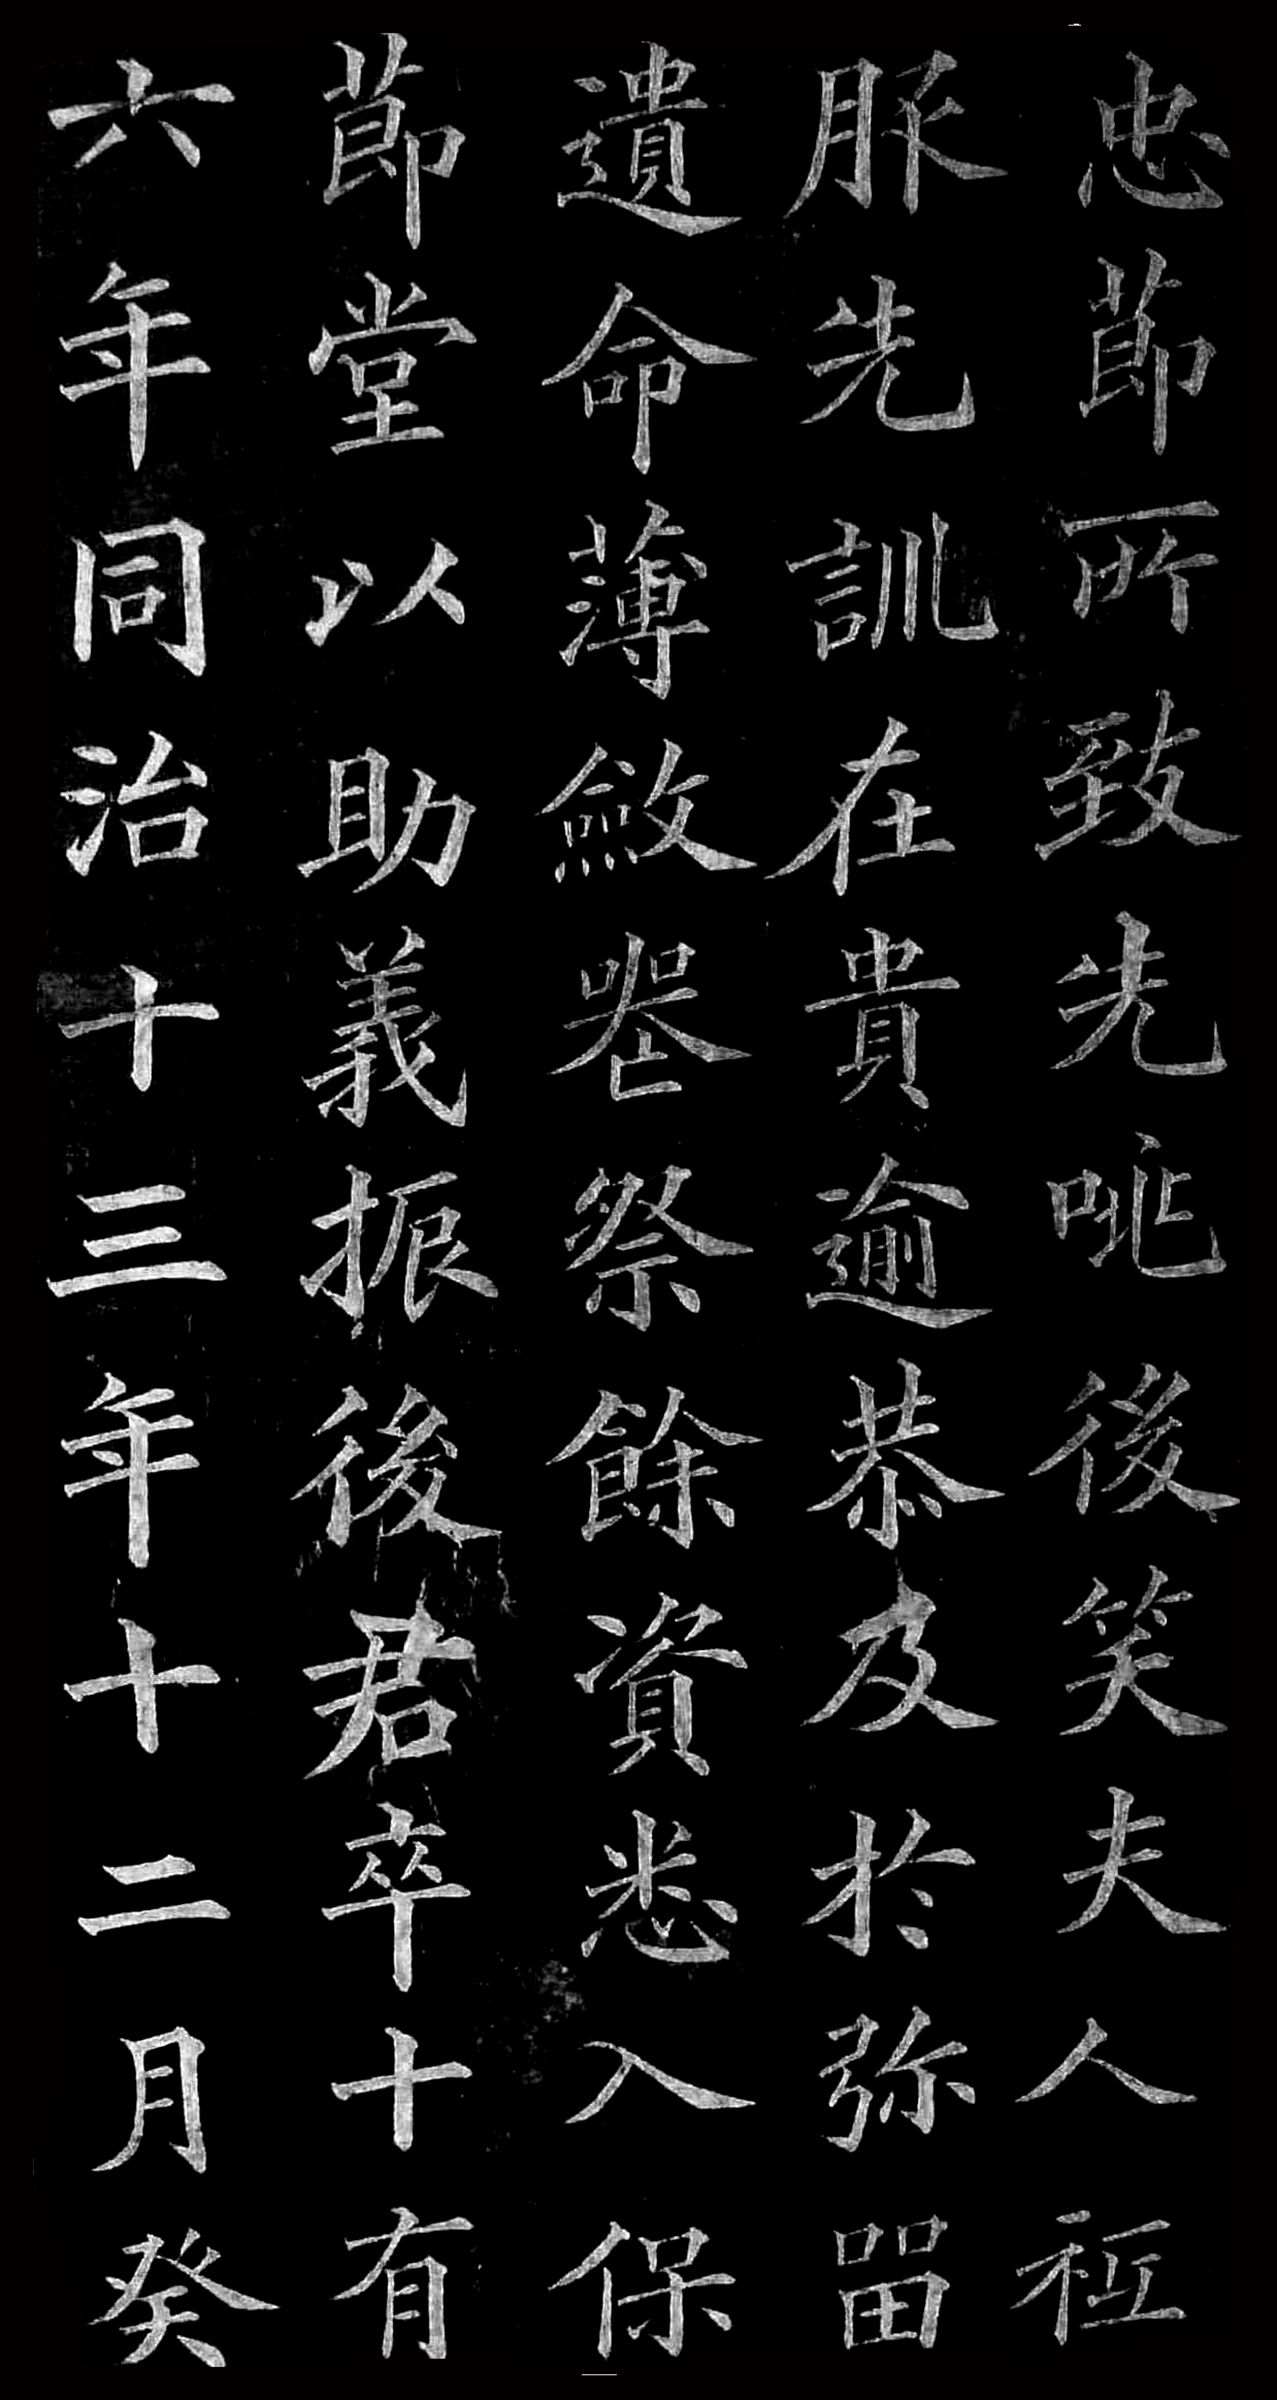 忠節所致先咷後笑夫人祗
服先訓在貴逾恭及於弥留
遺命薄斂喪祭餘資悉入保
節堂以助義振後君卒十有
六年同治十三年十二月癸